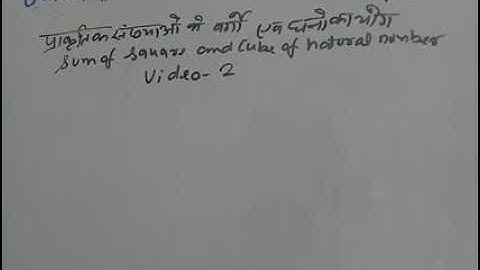 प्राकृतिक संख्याओ के वर्गो एवं घनो का योग
Sum of Square and Cube of natural number
Video-2